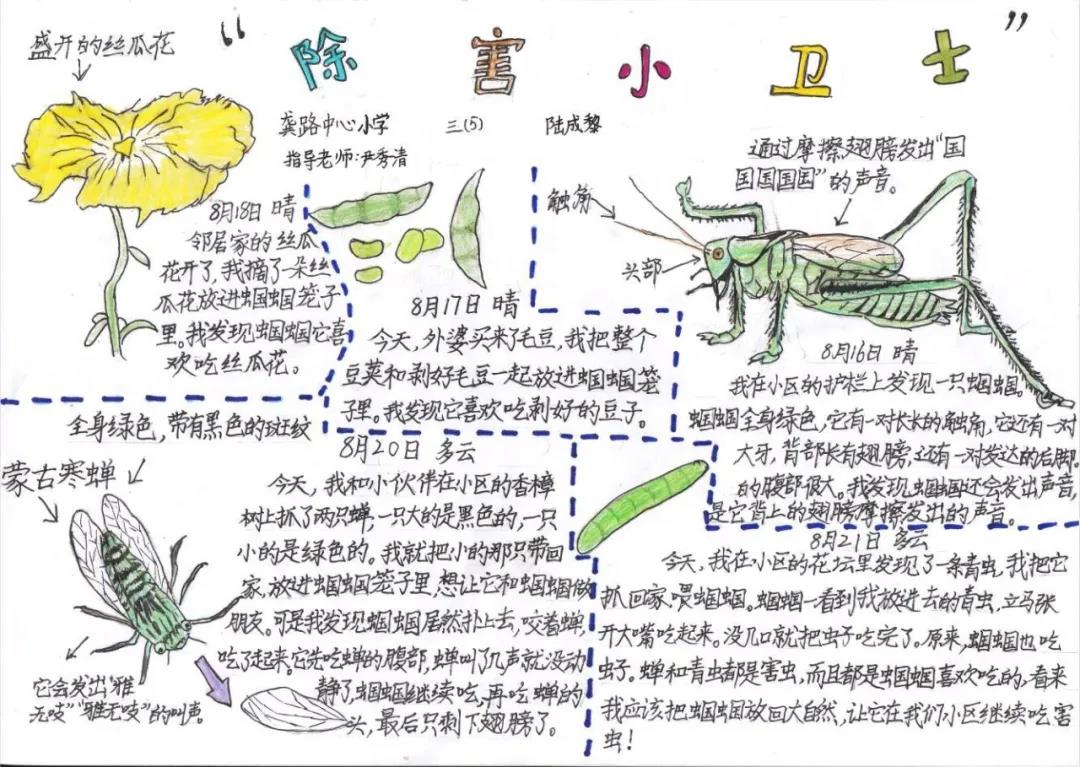 “除害小卫士”
龚路中心小学 三(5) 陆成黎
指导老师:尹秀清
盛开的丝瓜花
8月18日 晴
邻居家的丝瓜
花开了,我摘了一朵丝
瓜花放进蝈蝈笼子
里。我发现蝈蝈它喜
欢吃丝瓜花。
8月17日 晴
今天,外婆买来了毛豆,我把整个
豆荚和剥好毛豆一起放进蝈蝈笼
子里。我发现它喜欢吃剥好的豆子。
通过摩擦翅膀发出“国
国国国国”的声音。
触角
头部
8月16日 晴
我在小区的护栏上发现一只蝈蝈。
蝈蝈全身绿色,它有一对长长的触角,它还有一对
大牙,背部长有翅膀,还有一对发达的后脚。
的腹部很大。我发现蝈蝈还会发出声音,
是它背上的翅膀摩擦发出的声音。
全身绿色,带有黑色的斑纹
蒙古寒蝉
它会发出“雅
无吱”“雅无吱”的叫声。
8月20日 多云
今天,我和小伙伴在小区的香樟
树上抓了两只蝉,一只大的是黑色的,一只
小的是绿色的。我就把小的那只带回
家,放进蝈蝈笼子里,想让它和蝈蝈做
朋友。可是我发现蝈蝈居然扑上去,咬着蝉,
吃了起来。它先吃蝉的腹部,蝉叫了几声就没动
静了,蝈蝈继续吃,再吃蝉的
头,最后只剩下翅膀了。
8月21日 多云
今天,我在小区的花坛里发现了一条青虫,我把它
抓回家,喂蝈蝈。蝈蝈一看到我放进去的青虫,立马张
开大嘴吃起来。没几口就把虫子吃完了。原来,蝈蝈也吃
虫子。蝉和青虫都是害虫,而且都是蝈蝈喜欢吃的,看来
我应该把蝈蝈放回大自然,让它在我们小区继续吃害
虫!